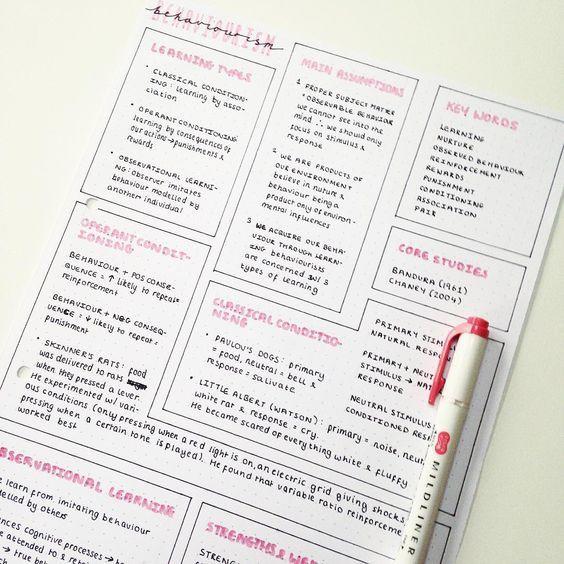 BEHAVIOURISM
behaviourism
LEARNING TYPES
• CLASSICAL CONDITION-
ING: learning by asso-
ciation
• OPERANT CONDITIONING
learning by consequences of
our actions → punishments &
rewards
• OBSERVATIONAL LEARNI-
NG: observer imitates
behaviour modelled by
another individual
MAIN ASSUMPTIONS
1 PROPER SUBJECT MATTER
* OBSERVABLE BEHAVIOUR
we cannot see into the
mind ∴ we should only
focus on stimulus &
response
2 WE ARE PRODUCTS OF
OUR ENVIRONMENT
believe in nature &
behaviour being a
product only of environ-
mental influences
3 WE ACQUIRE OUR BEHA-
VIOUR THROUGH LEARN-
ING behaviourists
are concerned w/ 3
types of learning
KEY WORDS
LEARNING
NURTURE
OBSERVED BEHAVIOUR
REINFORCEMENT
REWARDS
PUNISHMENT
CONDITIONING
ASSOCIATION
PAIR
CORE STUDIES
BANDURA (1961)
CHANEY (2004)
OPERANT CONDIT-
IONING
BEHAVIOUR + POS CONSE-
QUENCE = ↑ likely to repeat =
reinforcement
BEHAVIOUR + NEG CONSEQ-
UENCE = ↓ likely to repeat =
punishment
• SKINNER'S RATS: food
was delivered to rats
when they pressed a lever.
He experimented w/ vari-
ous conditions (only pressing when a red light is on, an electric grid giving shocks,
pressing when a certain tone is played). He found that variable ratio reinforcement
worked best
CLASSICAL CONDITIO-
NING
• PAVLOV'S DOGS: primary
= food, neutral = bell &
response = salivate
• LITTLE ALBERT (WATSON): primary = noise, neutral
white rat & response = cry.
He became scared of everything white & fluffy
PRIMARY STIMUL
NATURAL RESPON
PRIMARY + NEUT
STIMULUS → NA
RESPONSE
NEUTRAL STIMULUS
CONDITIONED RESP
MILDLINER
OBSERVATIONAL LEARNING
e learn from imitating behaviour
delled by others
ences cognitive processes →
e attended to & retai
→ true be
STRENGTHS & WE
STRENGTHS